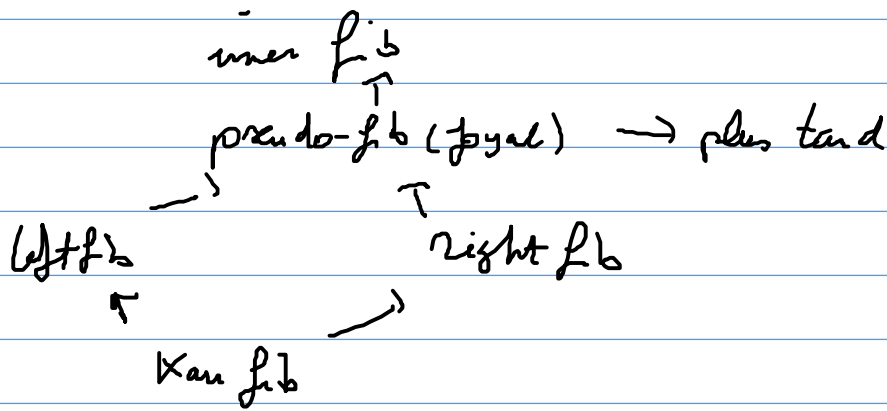 inner fib
pseudo-fib (Joyal) → plus tard
left fib right fib
Kan fib